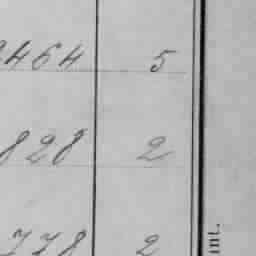 464 5
828 2
778 2
int.